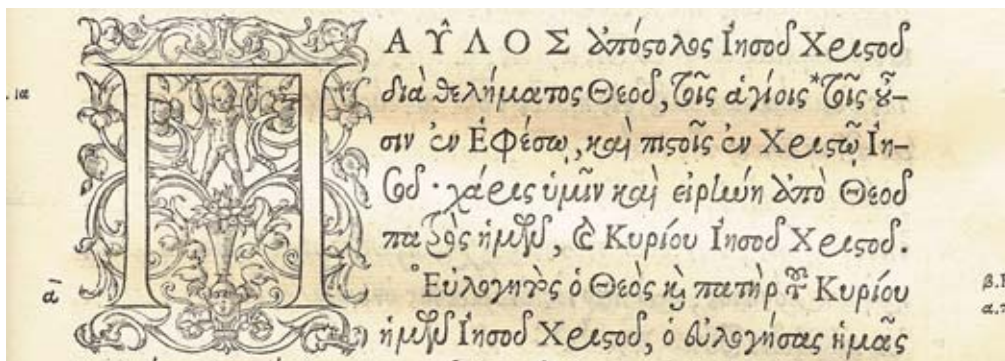 ΠΑΥΛΟΣ ἀπόστολος Ἰησοῦ Χριστοῦ
διὰ θελήματος Θεοῦ, τοῖς ἁγίοις *τοῖς οὖ-
σιν ἐν Ἐφέσῳ, καὶ πιστοῖς ἐν Χριστῷ Ἰη-
σοῦ · χάρις ὑμῖν καὶ εἰρήνη ἀπὸ Θεοῦ
πατρὸς ἡμῶν, καὶ Κυρίου Ἰησοῦ Χριστοῦ.
Εὐλογητὸς ὁ Θεὸς καὶ πατὴρ τοῦ Κυρίου
ἡμῶν Ἰησοῦ Χριστοῦ, ὁ εὐλογήσας ἡμᾶς